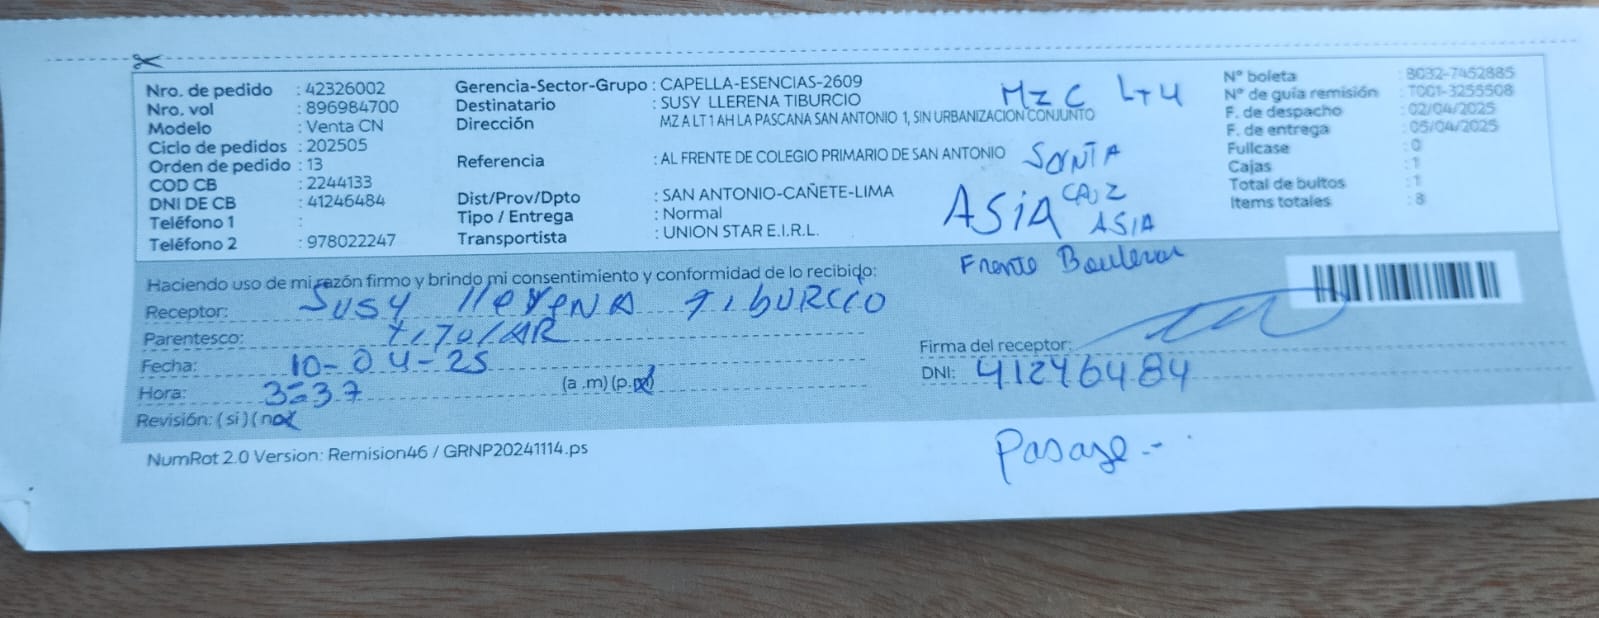 Nro. de pedido : 42326002
Nro. vol : 896984700
Modelo : Venta CN
Ciclo de pedidos : 202505
Orden de pedido : 13
COD CB : 2244133
DNI DE CB : 41246484
Teléfono 1 :
Teléfono 2 : 978022247
Gerencia-Sector-Grupo : CAPELLA-ESENCIAS-2609
Destinatario : SUSY LLERENA TIBURCIO
Dirección : MZ A LT 1 AH LA PASCANA SAN ANTONIO 1, SIN URBANIZACION CONJUNTO
Referencia : AL FRENTE DE COLEGIO PRIMARIO DE SAN ANTONIO
Dist/Prov/Dpto : SAN ANTONIO-CAÑETE-LIMA
Tipo / Entrega : Normal
Transportista : UNION STAR E.I.R.L.
MZ C LT 4
SANTA
CRUZ
ASIA
ASIA
Frente Boulevar
N° boleta : B032-7452885
N° de guía remisión : T001-3255508
F. de despacho : 02/04/2025
F. de entrega : 05/04/2025
Fullcase : 0
Cajas : 1
Total de bultos : 1
Items totales : 8
Haciendo uso de mi razón firmo y brindo mi consentimiento y conformidad de lo recibido:
Receptor: SUSY llerENA TibURCIO
Parentesco: TITOLAR
Fecha: 10-04-25
Hora: 3=37 (a .m) (p.m)
Revisión: ( si ) ( no )
Firma del receptor:
DNI: 41246484
NumRot 2.0 Version: Remision46 / GRNP20241114.ps
Pasaje.-